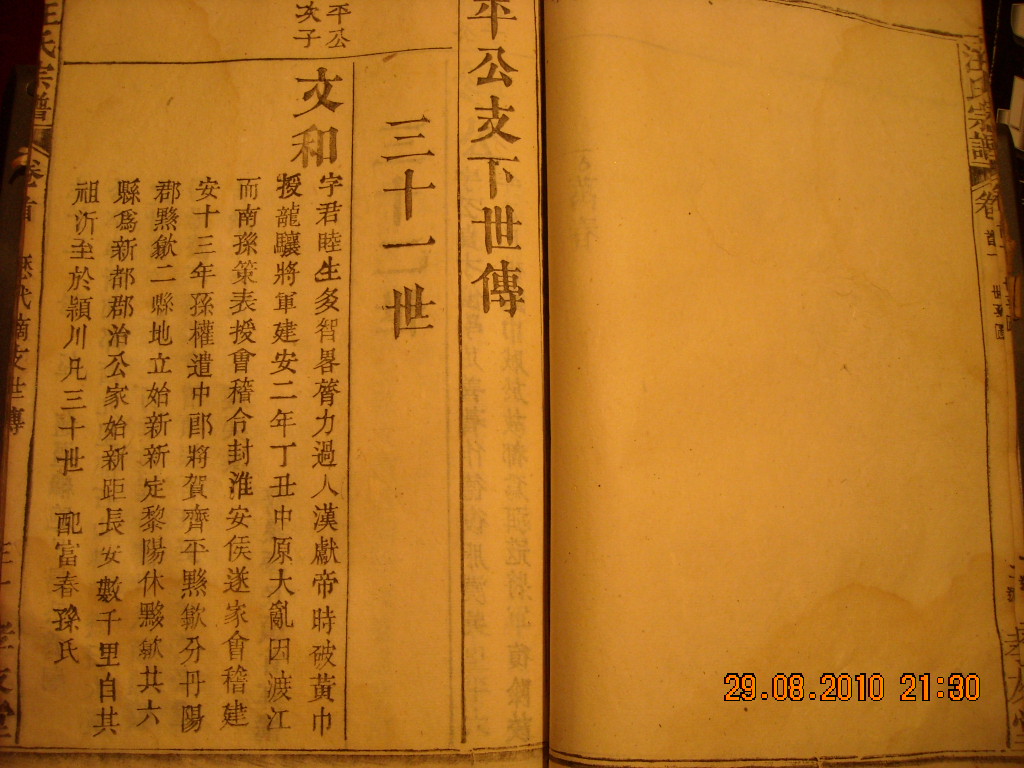 汪氏宗譜
卷
平公支下世傳
三十一世
平公
次子
文和
字君睦生多智畧膂力過人漢獻帝時破黃巾
授龍驤將軍建安二年丁丑中原大亂因渡江
而南孫策表授會稽令封淮安侯遂家會稽建
安十三年孫權遣中郎將賀齊平黟歙分丹陽
郡黟歙二縣地立始新新定黎陽休黟歙共六
縣爲新都郡治公家始新距長安數千里自共
祖沂至於頴川凡三十世 配富春孫氏
汪氏宗譜
卷首
歷代 支世傳
29.08.2010 21:30